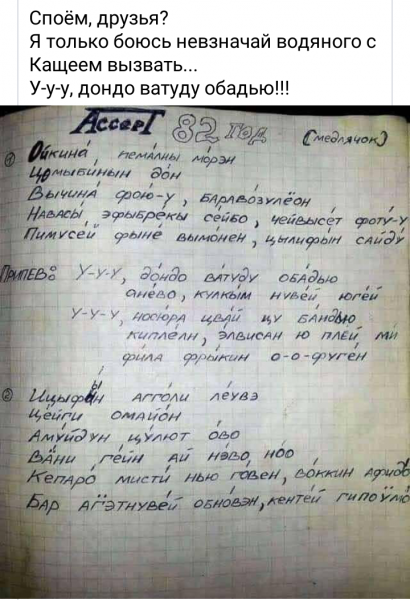 Споём, друзья?
Я только боюсь невзначай водяного с
Кащеем вызвать...
У-у-у, дондо ватуду обадью!!!
Accept 82 год (медлячок)
① Ойкина́, нема́лны мо́рэн
Цомыви́нын до́н
Вычина́ фою-у, баравозуле́он
Навасы́ эфыбре́кы се́йбо, чейвысе́т фоту́-у
Пимусе́й фыне́ вымо́нен, цылифы́н сайду́
Припев: У-у-у, до́ндо вату́ду обадью
ане́во, кулкы́м нуве́й юге́й
У-у-у, носюра цва́й цу ба́ндью
кипле́лн, э́лвисан ю пле́й ми
фила фры́кин о-о-фуге́н
② агго́ли ле́увэ
Це́йги омайо́н
Аму́йдун цу́лют о́во
Ва́ни ге́йн ай нэ́во но́о
Кепаро́ мисти́ нью го́вен, во́ккин
Бар обно́вэн, ке́нтей